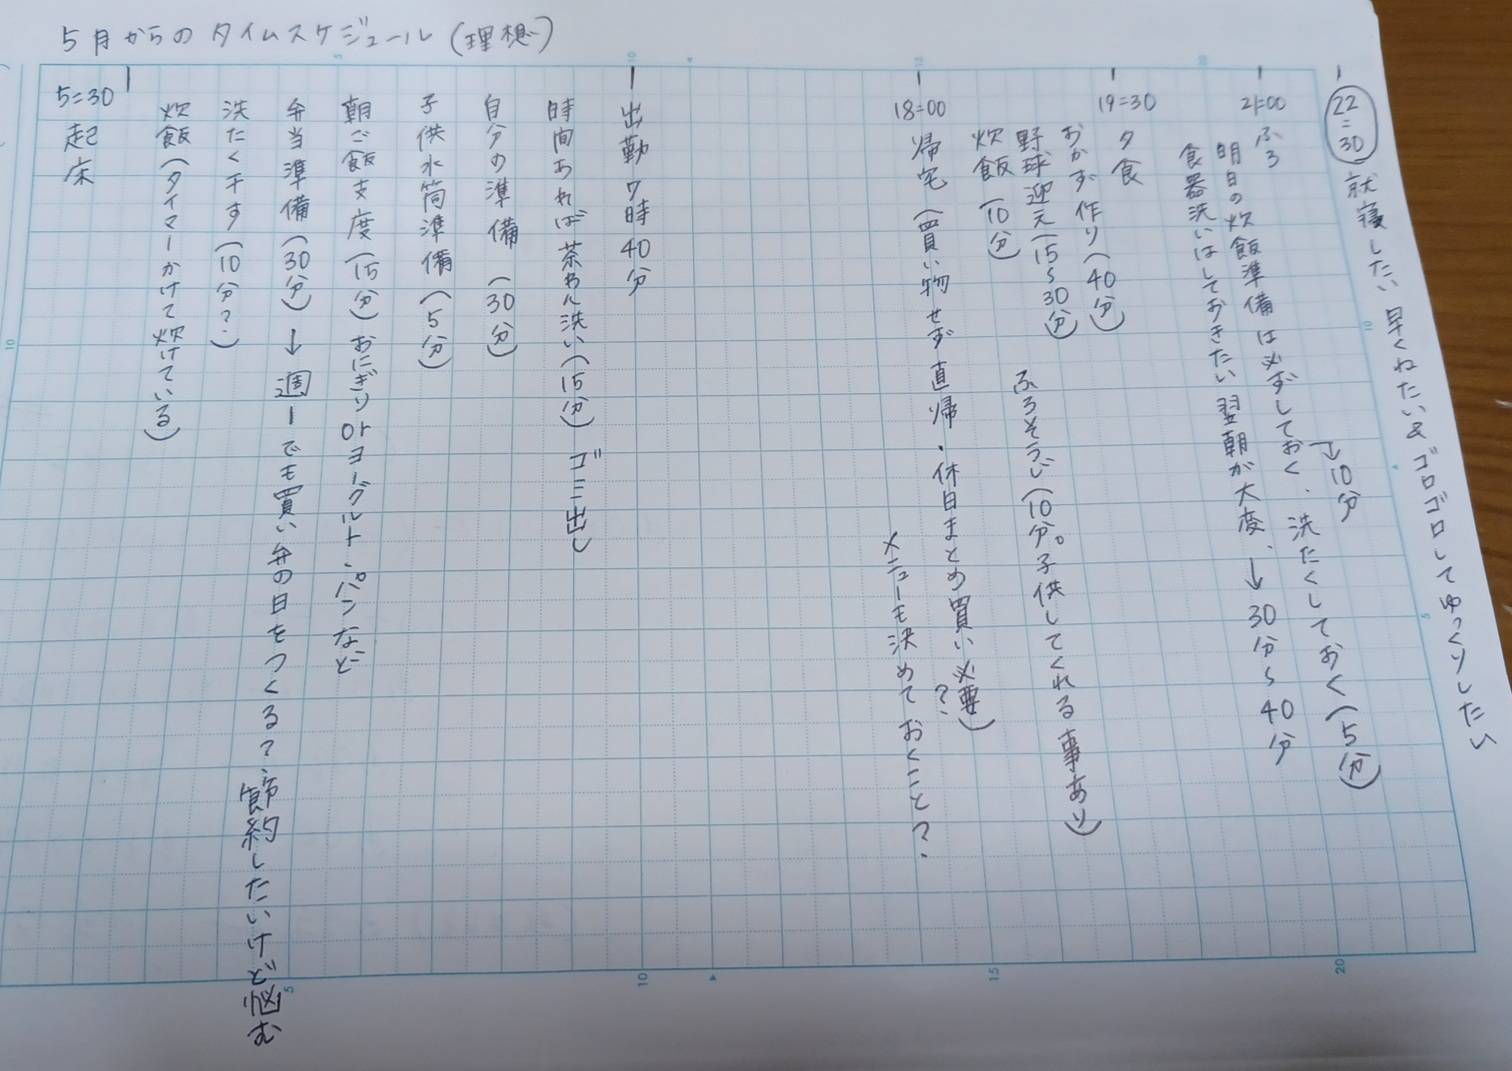 5月からのタイムスケジュール(理想)
5:30
起床
炊飯(タイマーかけて炊けている)
洗たく干す(10分?)
弁当準備(30分)→週1でも買い弁の日をつくる?節約したいけど悩む
朝ご飯支度(15分)おにぎりorヨーグルト・パンなど
子供水筒準備(5分)
自分の準備(30分)
時間あれば茶わん洗い(15分)ゴミ出し
出勤7時40分
18:00
帰宅(買い物せず直帰・休日まとめ買い必要?)
メニューも決めておくこと?
炊飯(10分)
野球迎え(15〜30分) ふろそうじ(10分。子供してくれる事あり)
おかず作り(40分)
19:30
夕食
21:00
ふろ
食器洗いはしておきたい翌朝が大変→30分〜40分
明日の炊飯準備は必ずしておく、洗たくしておく(5分)
→10分
22:30
就寝したい 早くねたい&ゴロゴロしてゆっくりしたい
5
10
15
20
10
5